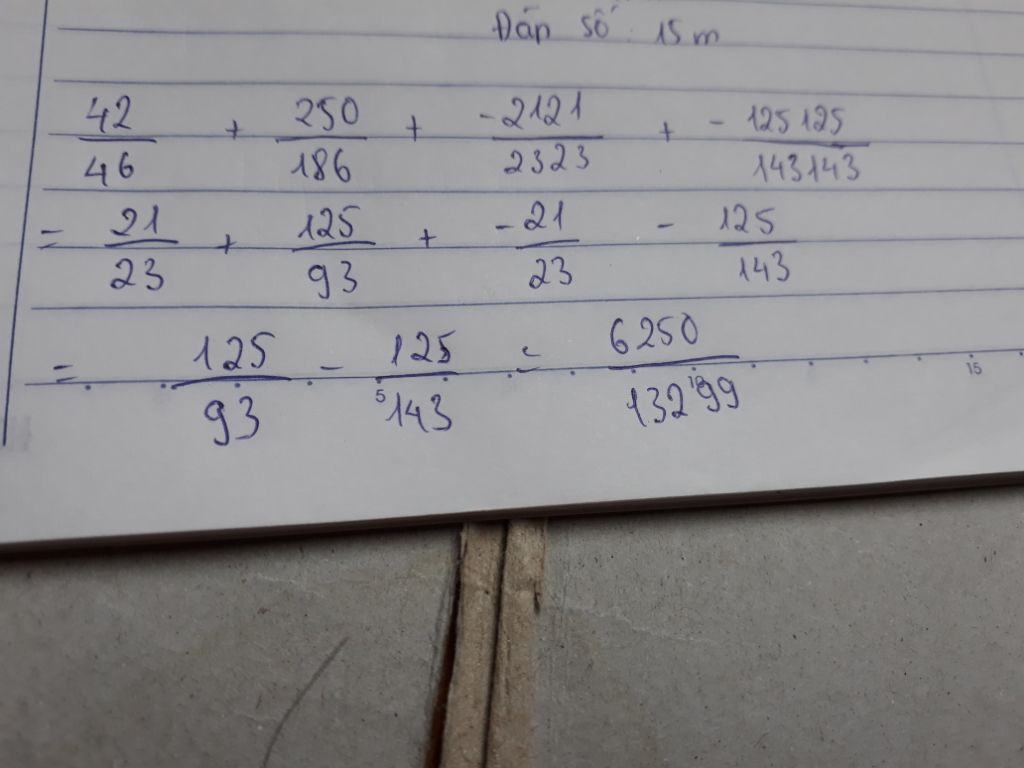 Đáp số: 15 m
42/46 + 250/186 + -2121/2323 + - 125125/143143
= 21/23 + 125/93 + -21/23 - 125/143
= 125/93 - 125/143 = 6250/13299
5 10 15